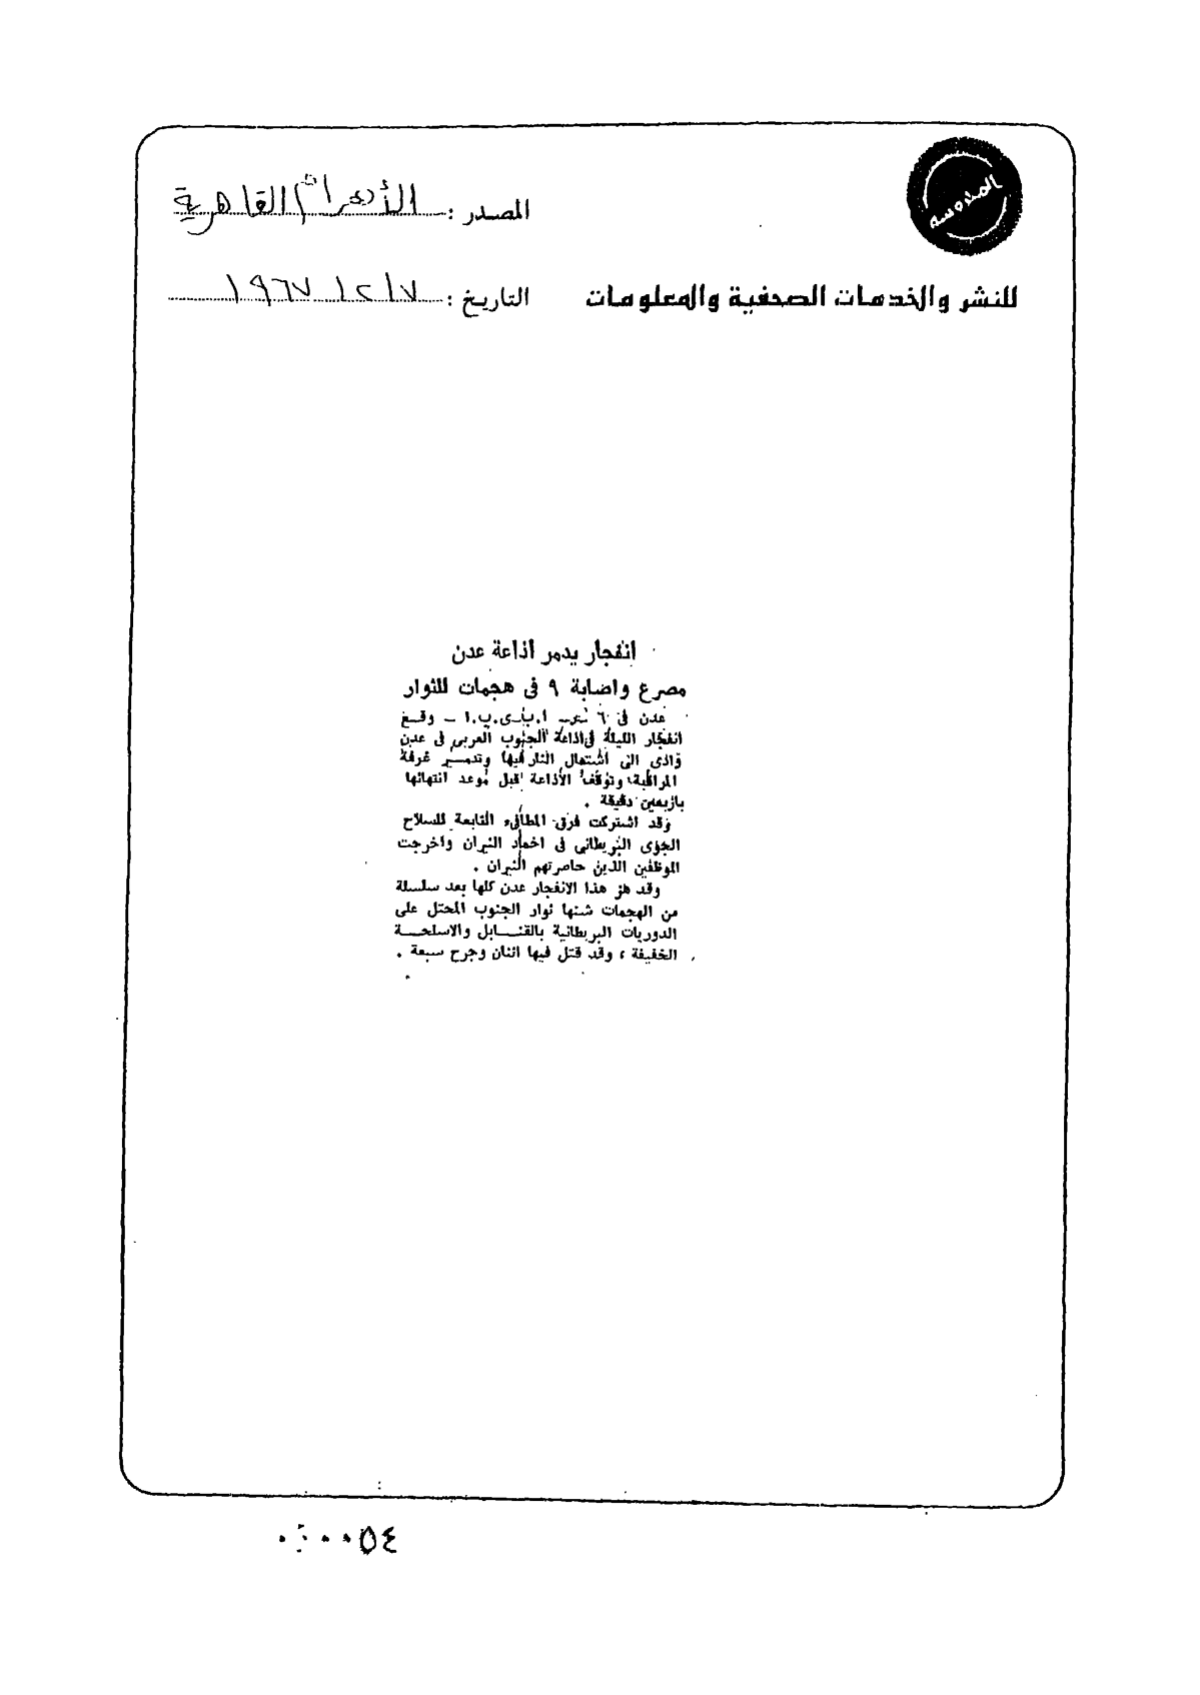 المدوسة
المصدر : الأهرام القاهرية
للنشر والخدمات الصحفية والمعلومات
التاريخ : ١٩٦٧/٢/٧
انفجار يدمر اذاعة عدن
مصرع واصابة ٩ فى هجمات للثوار
عدن فى ٦ ـ ا.ب،ى.ب.ا ـ وقـع
انفجار الليلة فى اذاعة الجنوب العربى فى عدن
وادى الى اشتعال النار فيها وتدمـير غرفة
المراقبة، وتوقف الاذاعة قبل موعد انتهائها
باربعين دقيقة .
وقد اشتركت فرق المطافىء التابعة للسلاح
الجوى البريطانى فى اخماد النيران واخرجت
الموظفين الذين حاصرتهم النيران .
وقد هز هذا الانفجار عدن كلها بعد سلسلة
من الهجمات شنها ثوار الجنوب المحتل على
الدوريات البريطانية بالقنـــابل والاسلحـــة
الخفيفة ، وقد قتل فيها اثنان وجرح سبعة .
٠٤٠٠٥٤